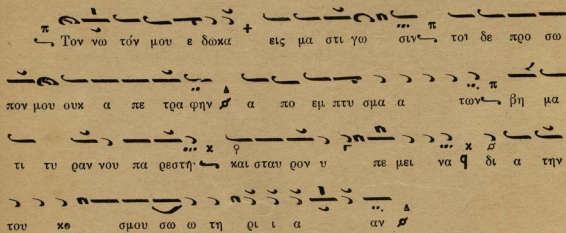 Τον νω τόν μου ε δωκα εις μα στι γω σιν τοι δε προ σω
πον μου ουκ α πε τρα φην α πο εμ πτυ σμα α των βη μα
τι τυ ραν νου πα ρεστή· και σταυ ρον υ πε μει να δι α την
του κο σμου σω ω τη ρι ι α αν